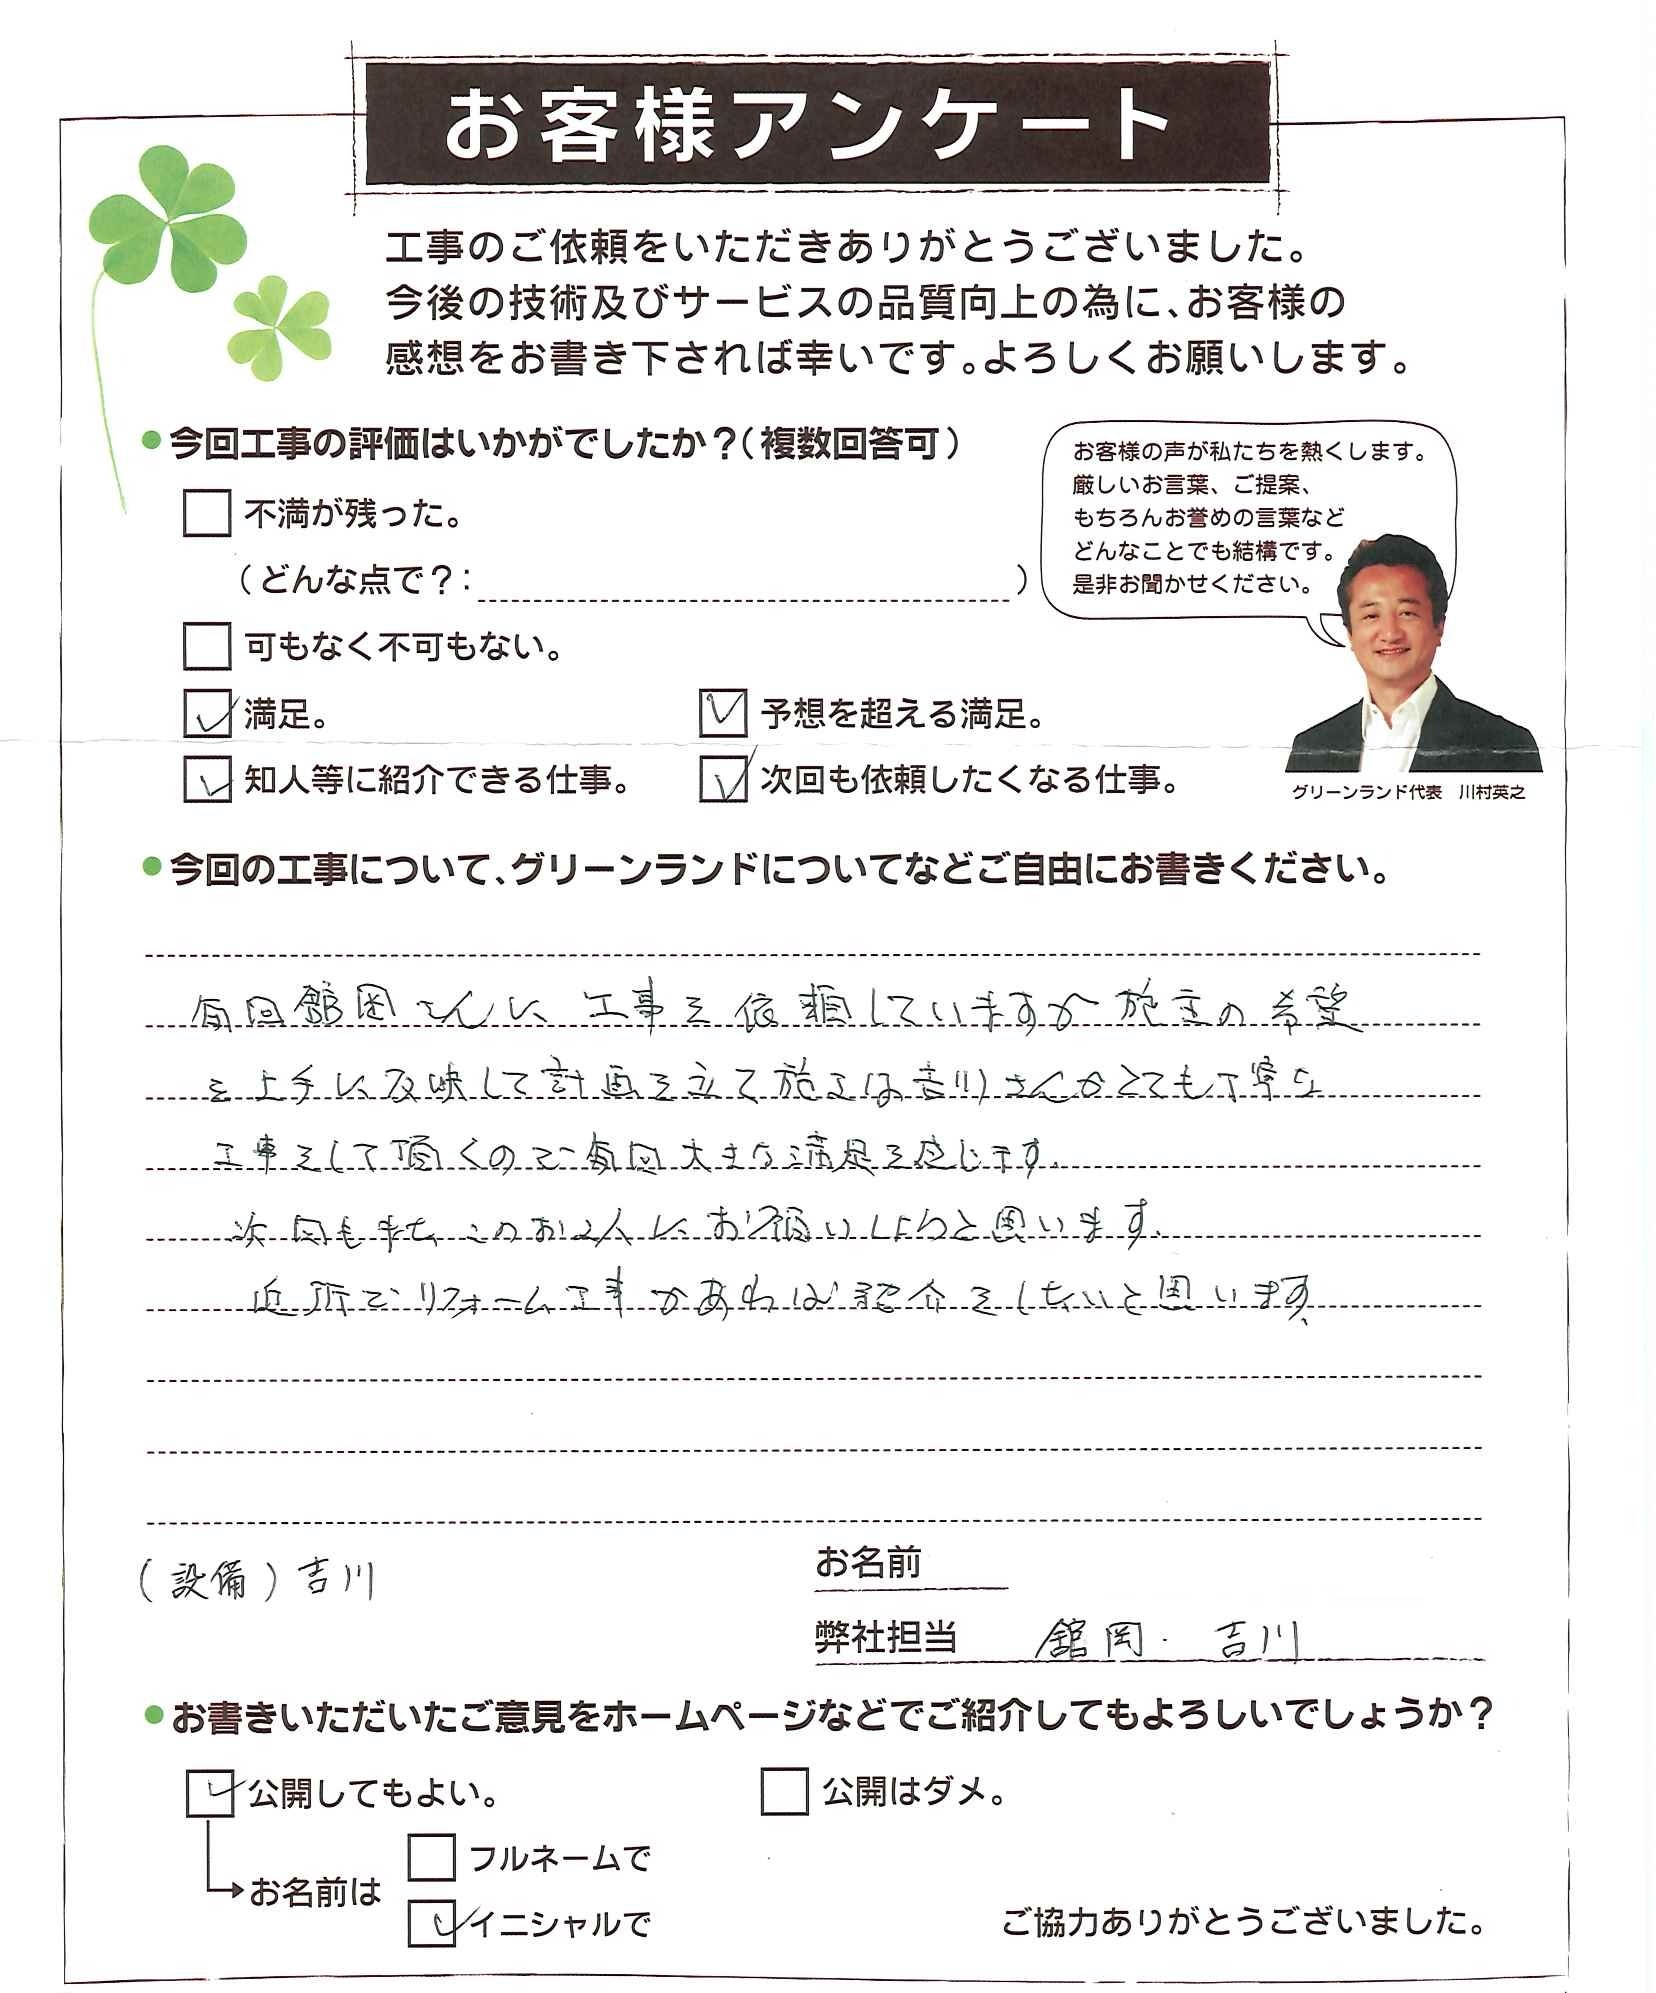 お客様アンケート
工事のご依頼をいただきありがとうございました。
今後の技術及びサービスの品質向上の為に、お客様の
感想をお書き下されば幸いです。よろしくお願いします。
●今回工事の評価はいかがでしたか？（複数回答可）
お客様の声が私たちを熱くします。
厳しいお言葉、ご提案、
もちろんお誉めの言葉など
どんなことでも結構です。
是非お聞かせください。
不満が残った。
（どんな点で？： ）
可もなく不可もない。
満足。 予想を超える満足。
知人等に紹介できる仕事。 次回も依頼したくなる仕事。
グリーンランド代表　川村英之
●今回の工事について、グリーンランドについてなどご自由にお書きください。
毎回舘岡さんに、工事を依頼していますが施主の希望
を上手に反映して計画を立て施工は吉川さんがとても丁寧な
工事をして頂くので毎回大きな満足を感じます。
次回もまたこのお2人にお願いしようと思います。
近所でリフォーム工事があれば紹介をしたいと思います。
（設備）吉川
お名前
弊社担当　舘岡・吉川
●お書きいただいたご意見をホームページなどでご紹介してもよろしいでしょうか？
公開してもよい。 公開はダメ。
フルネームで
お名前は
イニシャルで
ご協力ありがとうございました。